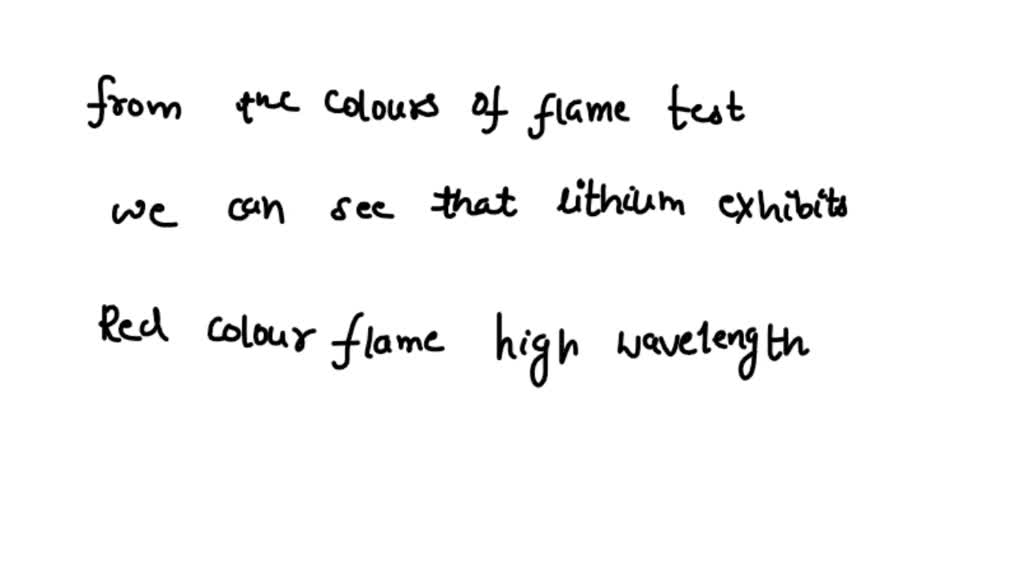 from the colours of flame test
we can see that lithium exhibits
Red colour flame high wavelength